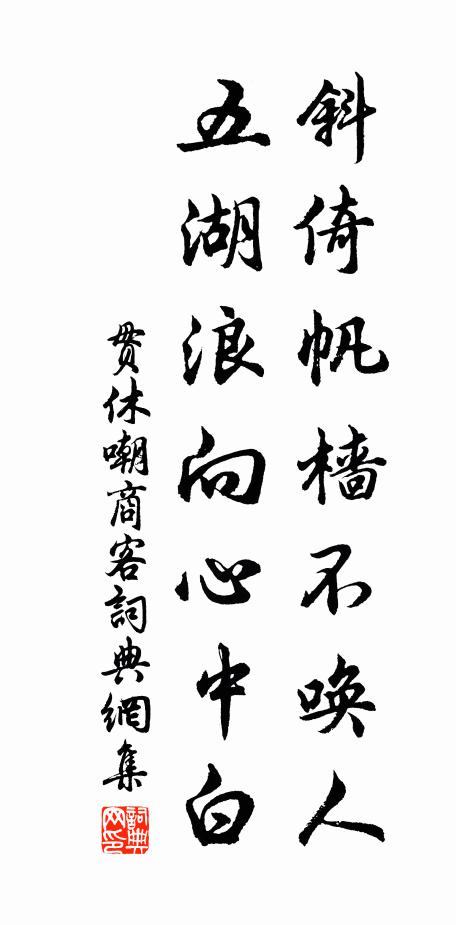 斜倚帆檣不喚人
五湖浪向心中白
貫休嘲商客詞典網集
詞典
网印